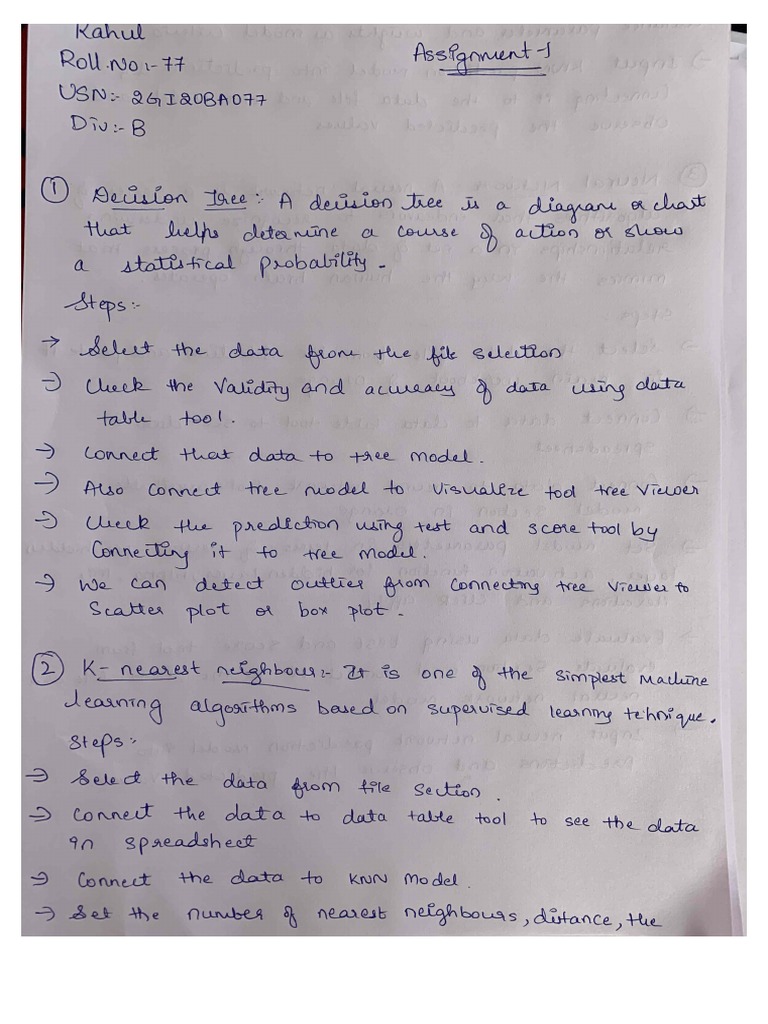 Rahul
Roll.No:- 77
Assignment-1
USN:- 2GI20BA077
Div:- B
① Decision Tree:- A decision tree is a diagram or chart
that helps determine a course of action or show
a statistical probability.
Steps:-
→ Select the data from the file selection
→ Check the Validity and accuracy of data using data
table tool.
→ Connect that data to tree model.
→ Also connect tree model to visualize tool tree viewer
→ Check the prediction using test and score tool by
Connecting it to tree model.
→ We can detect outlier from connecting tree viewer to
Scatter plot or box plot.
② K-nearest neighbour:- It is one of the simplest Machine
learning algorithms based on supervised learning technique.
Steps:-
→ Select the data from file section.
→ Connect the data to data table tool to see the data
in spreadsheet
→ Connect the data to KNN model.
→ Set the number of nearest neighbours, distance, the